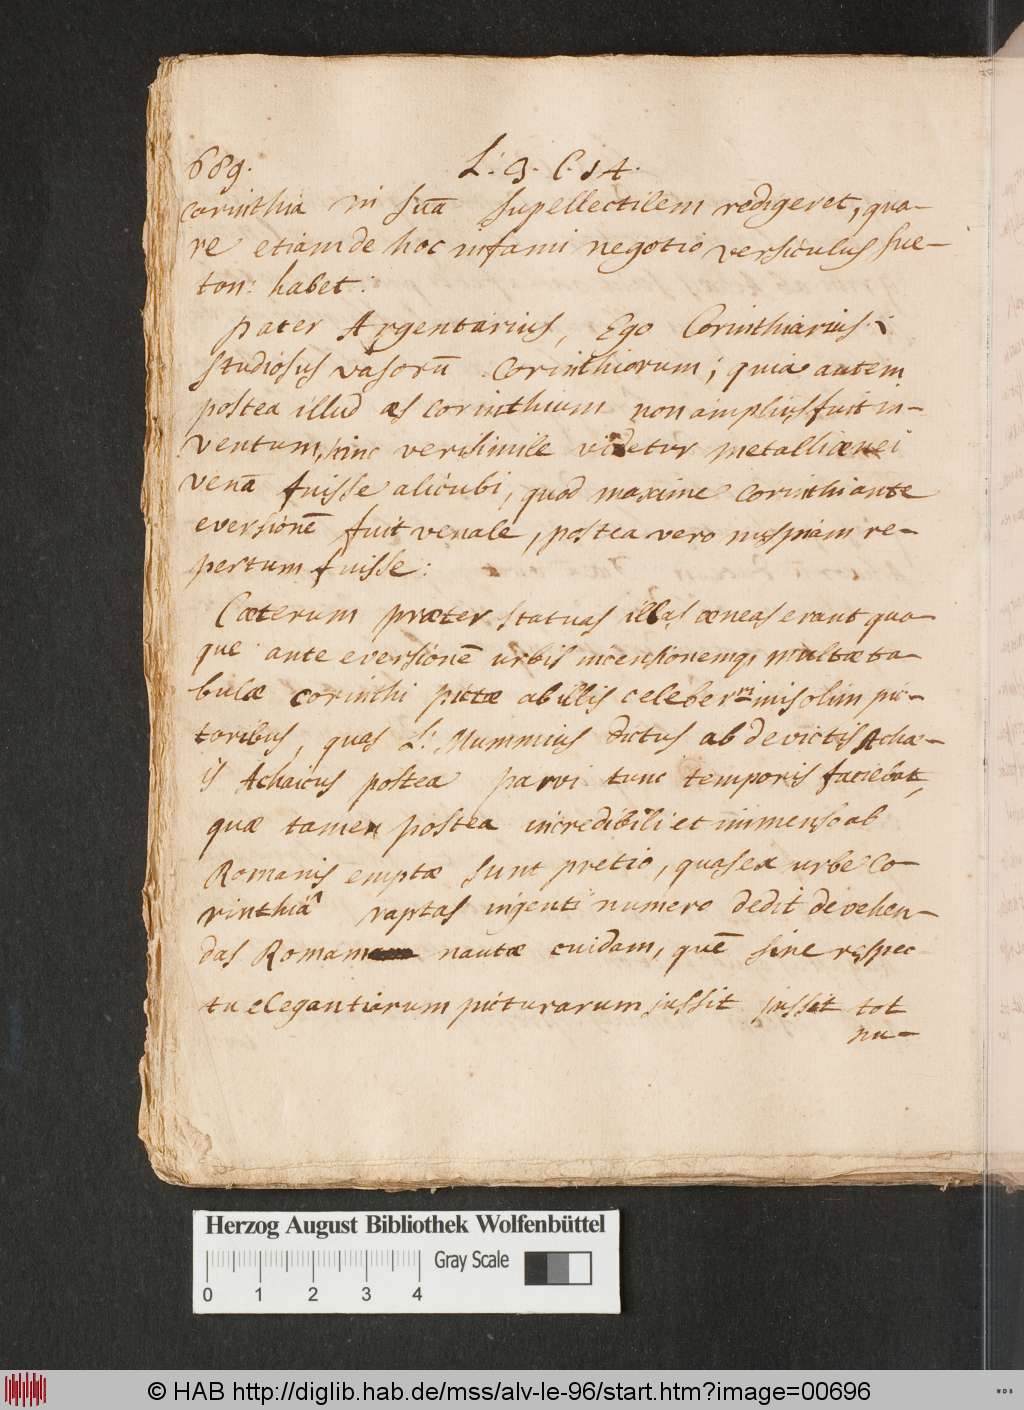 689.
L: 3. C. 14.
corinthia in suā supellectilem redigeret, qua-
re etiam de hoc infami negotio versiculus sue-
ton: habet:
pater Argentarius, Ego Corinthiarius:
studiosus vasorū corinthiorum; quia autem
postea illud æs corinthium non amplius fuit in-
ventum, hinc verisimile videtur metalli ænei
venā fuisse alicubi, quod maxime corinthi ante
eversionē fuit venale, postea vero nuspiam re-
pertum fuisse:
Cæterum præter statuas illas æneas erant quo-
que ante eversionē urbis incensionemq, multæ ta-
bulæ corinthi pictæ ab illis celeberrimis olim pic-
toribus, quas L: Mummius dictus ab devictis Achæ-
is Achaicus postea parvi tunc temporis faciebat,
quæ tamen postea incredibili et immenso ab
Romanis emptæ sunt pretio, quas ex urbe Co-
rinthiâ raptas ingenti numero dedit devehen-
das Romam nautæ cuidam, quē sine respec-
tu elegantiarum picturarum jussit jussit tot
nu-
Herzog August Bibliothek Wolfenbüttel
Gray Scale
0 1 2 3 4
© HAB http://diglib.hab.de/mss/alv-le-96/start.htm?image=00696